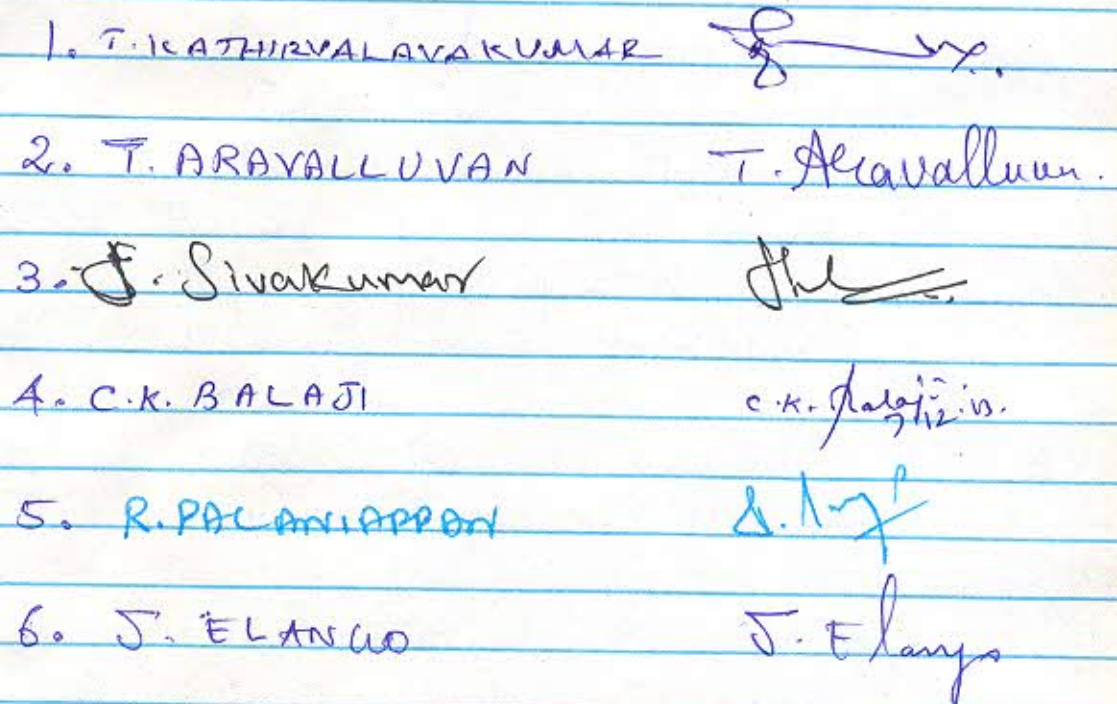 1. T. KATHIRVALAVAKUMAR
2. T. ARAVALLUVAN T. Aravalluvan.
3. J. Sivakumar
4. C.K. BALAJI C.K. Balaji 7/12.13.
5. R. PALANIAPPAN
6. J. ELANGO J. Elango